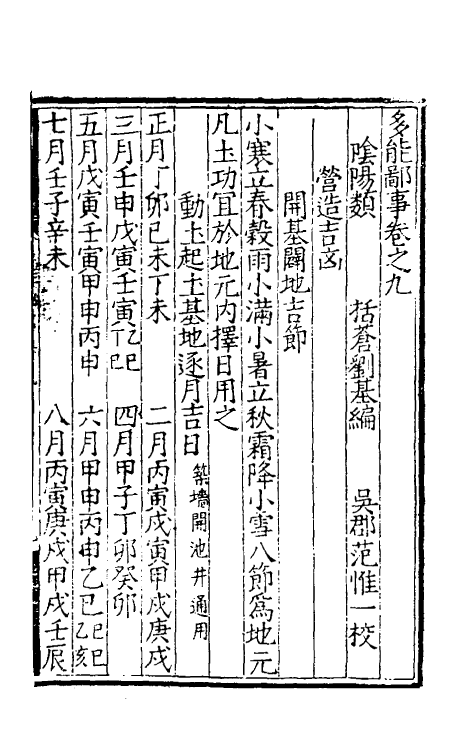 多能鄙事卷之九
陰陽類 括蒼劉基編 吳郡范惟一校
營造吉凶
開基闢地吉節
小寒立春穀雨小滿小暑立秋霜降小雪八節為地元
凡土功宜於地元內擇日用之
動土起土基地逐月吉日 築墻開池井通用
正月丁卯己未丁未 二月丙寅戊寅甲戌庚戌
三月壬申戊寅壬寅丁巳 四月甲子丁卯癸卯
五月戊寅壬寅甲申丙申 六月甲申丙申乙巳己巳乙亥
七月壬子辛未 八月丙寅庚戌甲戌壬辰